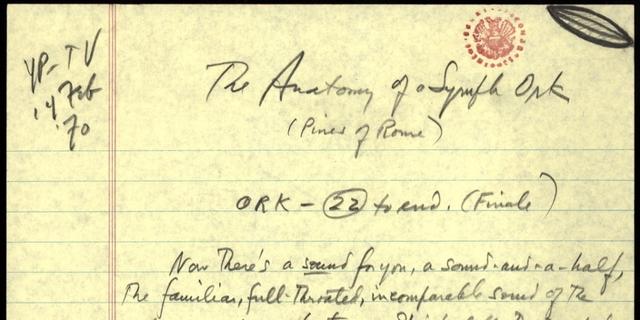 YP-TV
14 Feb
'70
The Anatomy of a Symph Ork
(Pines of Rome)
ORK - 22 to end. (Finale)
Now There's a sound for you, a sound-and-a-half,
The familiar, full-throated, incomparable sound of the